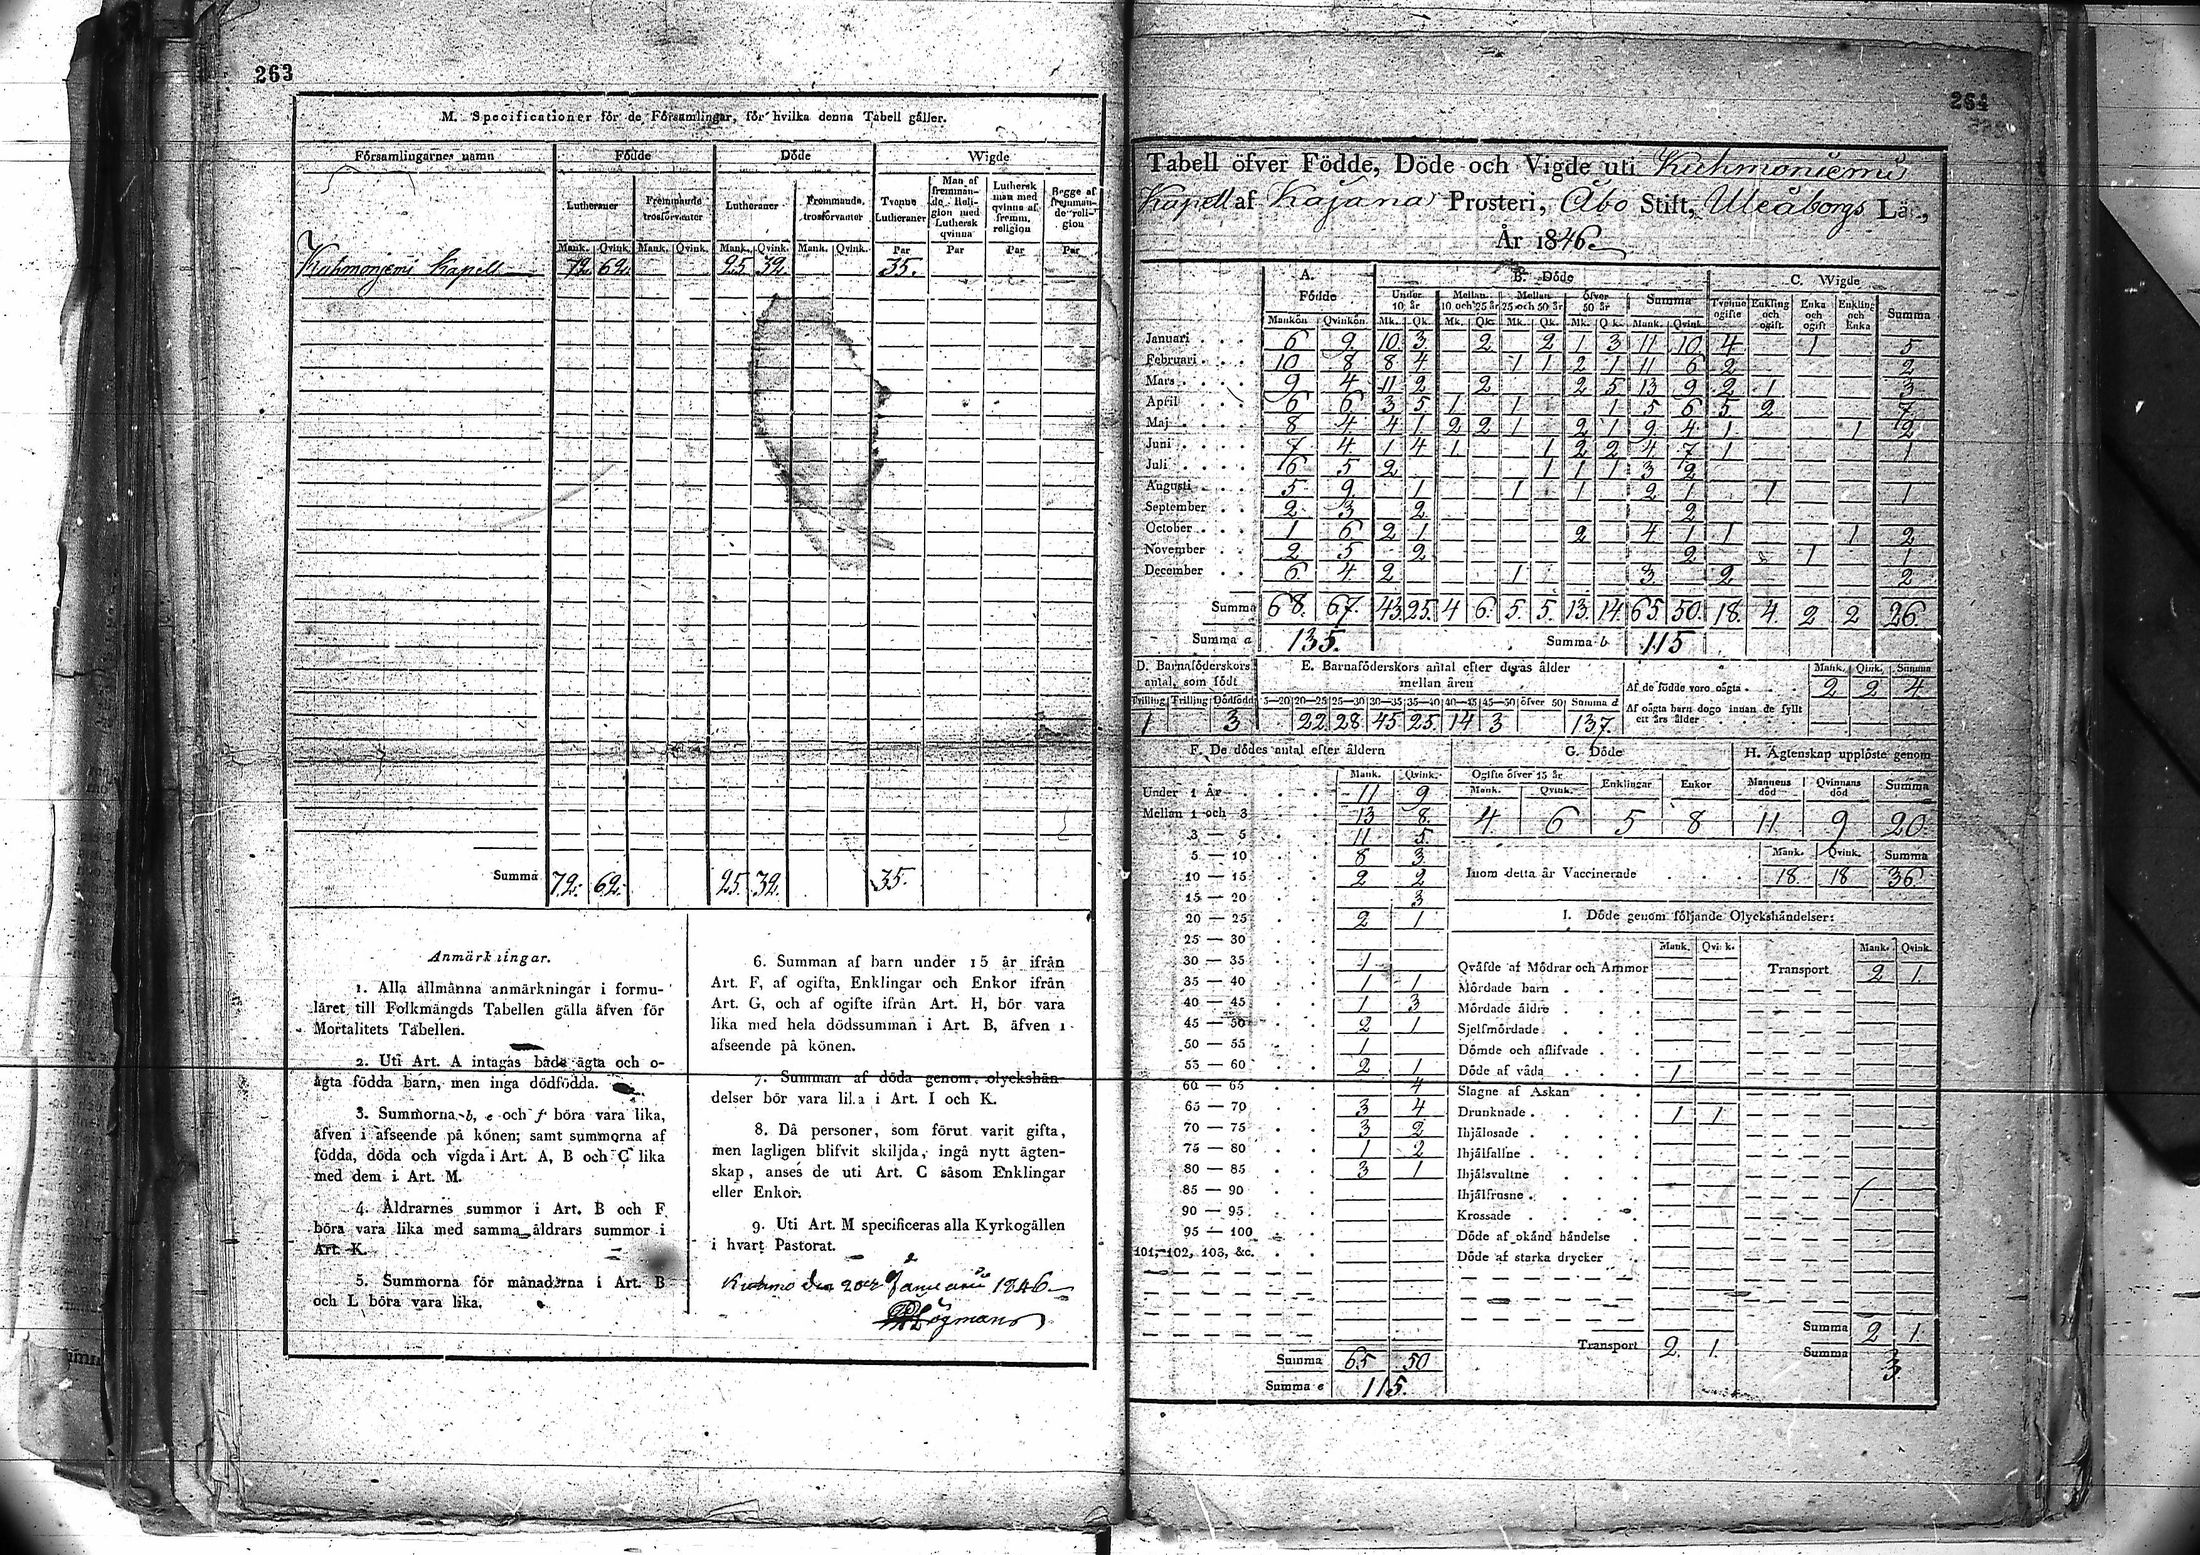 263
M. Specificationer för de Församlingar, för hvilka denna Tabell gäller.
Församlingarnes namn Födde Döde Wigde
Lutheraner Fremmande trosförvanter Lutheraner Fremmande trosförvanter Tvenne Lutheraner Man af fremmande Religion med Luthersk qvinna Luthersk man med qvinna af fremm. religion Begge af fremmande religion
Mank. Qvink. Mank. Qvink. Mank. Qvink. Mank. Qvink. Par Par Par Par
Kuhmoniemi Kapell 72 62 25 32 35.
Summa 72. 62. 25. 32. 35.
Anmärkningar.
1. Alla allmänna anmärkningar i formu-
läret till Folkmängds Tabellen gälla äfven för
Mortalitets Tabellen.
2. Uti Art. A intagas både ägta och o-
ägta födda barn, men inga dödfödda.
3. Summorna b, e och f böra vara lika,
äfven i afseende på könen; samt summorna af
födda, döda och vigda i Art. A, B och C lika
med dem i Art. M.
4. Åldrarnes summor i Art. B och F
böra vara lika med samma åldrars summor i
Art. K.
5. Summorna för månaderna i Art. B
och L böra vara lika.
6. Summan af barn under 15 år ifrån
Art. F, af ogifta, Enklingar och Enkor ifrån
Art. G, och af ogifte ifrån Art. H, bör vara
lika med hela dödssumman i Art. B, äfven i
afseende på könen.
7. Summan af döda genom olyckshän-
delser bör vara lika i Art. I och K.
8. Då personer, som förut varit gifta,
men lagligen blifvit skiljda, ingå nytt ägten-
skap, anses de uti Art. C såsom Enklingar
eller Enkor.
9. Uti Art. M specificeras alla Kyrkogällen
i hvart Pastorat.
Kuhmo den 20de Januarii 1846
264
Tabell öfver Födde, Döde och Vigde uti Kuhmoniemi
Kapell af Kajana Prosteri, Åbo Stift, Uleåborgs Län,
År 1846
A. Födde B. Döde C. Wigde
Under 10 år Mellan 10 och 25 år Mellan 25 och 50 år öfver 50 år Summa Tvenne ogifte Enkling och ogift Enka och ogift Enkling och Enka Summa
Mankön Qvinkön Mk. Qk. Mk. Qk. Mk. Qk. Mk. Qk. Mank. Qvink.
Januari 6 9 10 3 2 2 1 3 11 10 4 1 5
Februari 10 8 8 4 1 1 2 1 11 6 2 2
Mars 9 4 11 2 2 2 5 13 9 2 1 3
April 6 6 3 5 1 1 1 5 6 5 2 7
Maj 8 4 4 1 2 2 1 2 1 9 4 1 1 2
Juni 7 4 1 4 1 1 2 2 4 7 1 1
Juli 6 5 2 1 1 1 3 2
Augusti 5 9 1 1 1 2 1 1 1
September 2 3 2 2
October 1 6 2 1 2 4 1 1 1 2
November 2 5 2 2 1 1
December 6 4 2 1 3 2 2
Summa 68. 67. 43. 25. 4 6. 5. 5. 13. 14. 65 50. 18. 4. 2 2 26.
Summa a 135. Summa b 115
D. Barnaföderskors antal, som födt
Tvilling Trilling Dödfödd
1 3
E. Barnaföderskors antal efter deras ålder mellan åren
15—20 20—25 25—30 30—35 35—40 40—45 45—50 öfver 50 Summa d
22 28 45 25. 14 3 137.
Mank. Qink. Summa
Af de födde voro oägta 2 2 4
Af oägta barn dogo innan de fyllt ett års ålder
F. De dödes antal efter åldern
Mank. Qvink.
Under 1 År 11 9
Mellan 1 och 3 13 8.
3 — 5 11 5.
5 — 10 8 3
10 — 15 2 2
15 — 20 3
20 — 25 2 1
25 — 30
30 — 35 1
35 — 40 1 1
40 — 45 1 3
45 — 50 2 1
50 — 55 1
55 — 60 2 1
60 — 65 4
65 — 70 3 4
70 — 75 3 2
75 — 80 1 2
80 — 85 3 1
85 — 90
90 — 95
95 — 100
101, 102, 103, &c.
Summa 65 50
Summa e 115.
G. Döde
Ogifte öfver 15 år Enklingar Enkor
Mank. Qvink.
4 6 5 8
H. Ägtenskap upplöste genom
Mannens död Qvinnans död Summa
11 9 20.
Mank. Qvink. Summa
Inom detta år Vaccinerade 18. 18 36
I. Döde genom följande Olyckshändelser:
Mank. Qvink. Mank. Qvink.
Qväfde af Mödrar och Ammor Transport 2 1.
Mördade barn
Mördade äldre
Sjelfmördade
Dömde och aflifvade
Döde af våda 1
Slagne af Åskan
Drunknade 1 1
Ihjälosade
Ihjälfallne
Ihjälsvultne
Ihjälfrusne
Krossade
Döde af okänd händelse
Döde af starka drycker
Summa 2 1.
Transport 2. 1. Summa 3